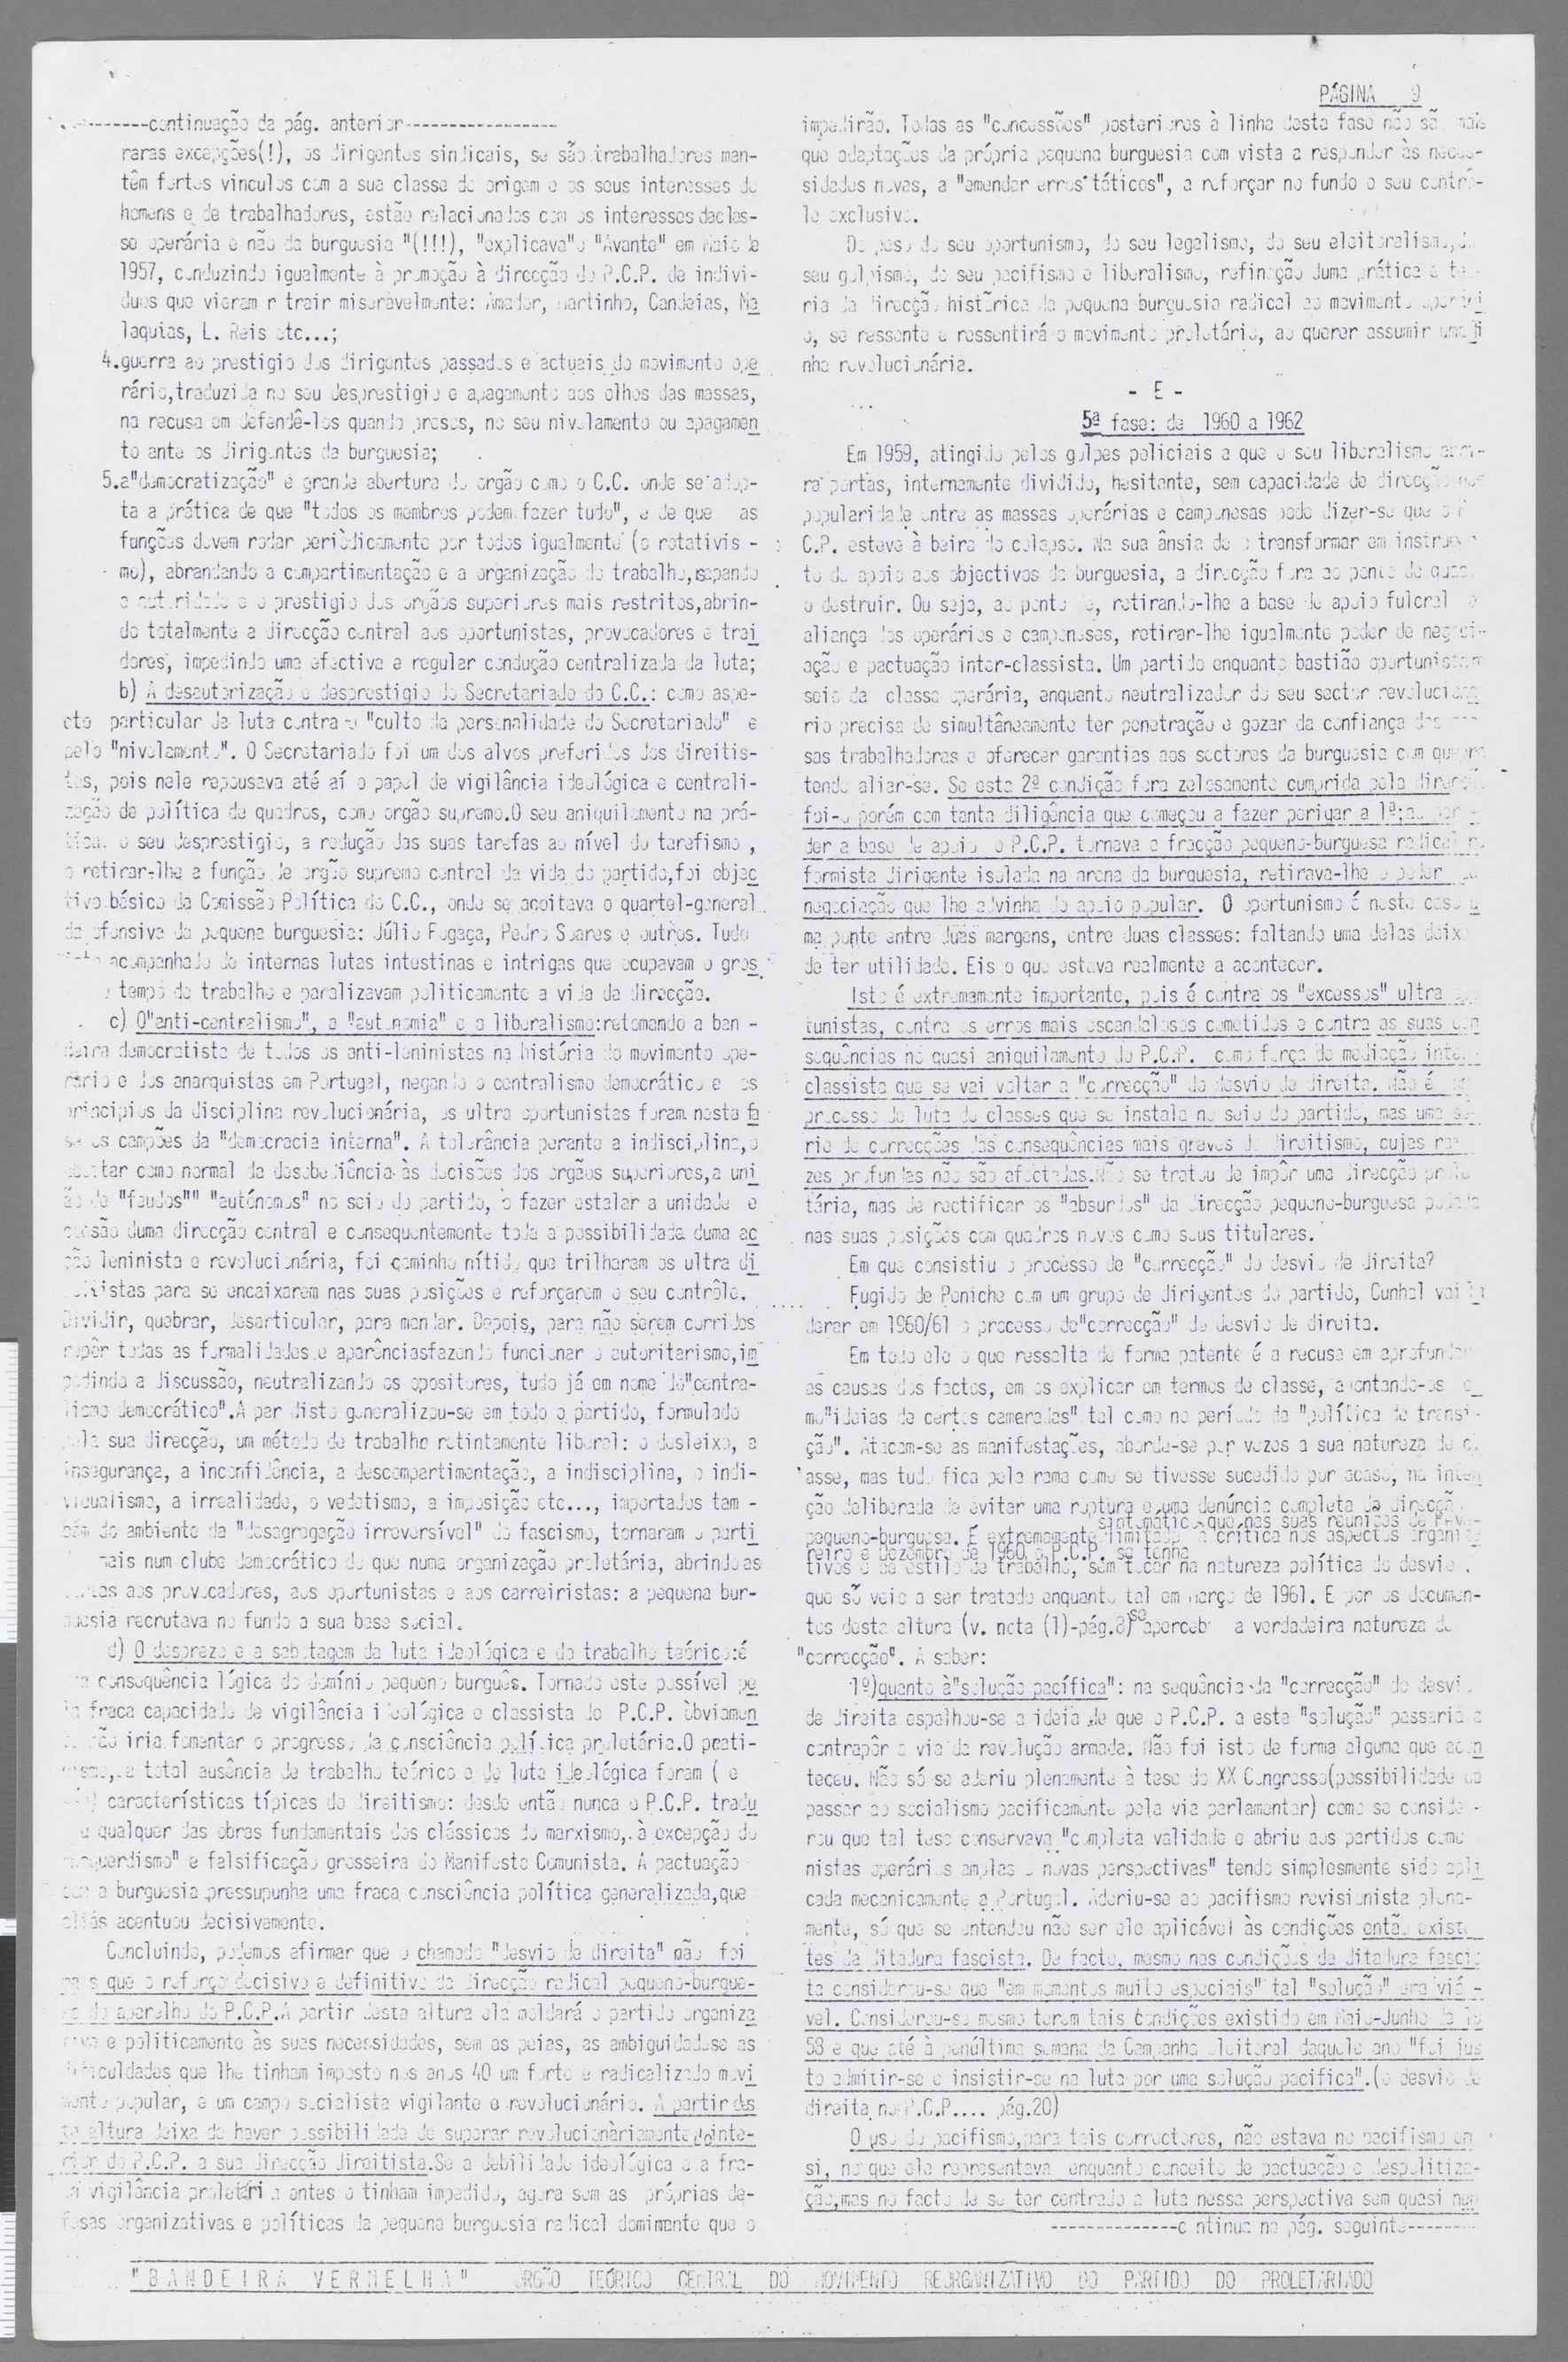 PÁGINA 9
---------continuação da pág. anterior------------------
raras excepções(!), os dirigentes sindicais, se são trabalhadores man-
têm fortes vinculos com a sua classe de origem e os seus interesses de
homens e de trabalhadores, estão relacionados com os interesses daclas-
se operária e não da burguesia "(!!!), "explicava"o "Avante" em Maio de
1957, conduzindo igualmente à promoção à direcção do P.C.P. de indivi-
duos que vieram r trair miseràvelmente: Amador, Martinho, Candeias, Ma
laquias, L. Reis etc...;
4.guerra ao prestigio dos dirigentes passados e actuais do movimento ope
rário,traduzida no seu desprestigio e apagamento aos olhos das massas,
na recusa em defendê-los quando presos, no seu nivelamento ou apagamen
to ante os dirigentes da burguesia;
5.a"democratização" e grande abertura do orgão como o C.C. onde se adop-
ta a prática de que "todos os membros podem fazer tudo", e de que as
funções devem rodar periòdicamente por todos igualmente (o rotativis -
mo), abrandando a compartimentação e a organização do trabalho,sapando
a autoridade e o prestigio dos orgãos superiores mais restritos,abrin-
do totalmente a direcção central aos oportunistas, provocadores e trai
dores, impedindo uma efectiva e regular condução centralizada da luta;
b) A desautorização e desprestigio do Secretariado do C.C.: como aspe-
cto particular da luta contra o "culto da personalidade do Secretariado" e
pelo "nivelamento". O Secretariado foi um dos alvos preferidos dos direitis-
tas, pois nele repousava até aí o papel de vigilância ideológica e centrali-
zação da política de quadros, como orgão supremo.O seu aniquilamento na prá-
tica, o seu desprestigio, a redução das suas tarefas ao nível do tarefismo ,
o retirar-lhe a função de orgão supremo central da vida do partido,foi objec
tivo básico da Comissão Política do C.C., onde se acoitava o quartel-general
da ofensiva da pequena burguesia: Júlio Fogaça, Pedro Soares e outros. Tudo
isto acompanhado de internas lutas intestinas e intrigas que ocupavam o gros
o tempo de trabalho e paralizavam politicamente a vida da direcção.
c) O"anti-centralismo", a "autonomia" e o liberalismo:retomando a ban -
deira democratista de todos os anti-leninistas na história do movimento ope-
rário e dos anarquistas em Portugal, negando o centralismo democrático e os
principios da disciplina revolucionária, os ultra oportunistas foram nesta fa
se os campões da "democracia interna". A tolerância perante a indisciplina,o
aceitar como normal da desobediência às decisões dos orgãos superiores,a uni
ão de "feudos"" "autónomos" no seio do partido, o fazer estalar a unidade e
coesão duma direcção central e consequentemente toda a possibilidada duma ac
ção leninista e revolucionária, foi caminho nítido que trilharam os ultra di
reitistas para se encaixarem nas suas posições e reforçarem o seu contrôle.
Dividir, quebrar, desarticular, para mandar. Depois, para não serem corridos
repôr todas as formalidades e aparênciasfazendo funcionar o autoritarismo,im
pedindo a discussão, neutralizando os opositores, tudo já em nome do"centra-
lismo democrático".A par disto generalizou-se em todo o partido, formulado
pela sua direcção, um método de trabalho retintamente liberal: o desleixo, a
insegurança, a inconfidência, a descompartimentação, a indisciplina, o indi-
vidualismo, a irrealidade, o vedetismo, a imposição etc..., importados tam -
bém do ambiente da "desagregação irreversível" do fascismo, tornaram o parti
mais num clube democrático do que numa organização proletária, abrindoas
portas aos provocadores, aos oportunistas e aos carreiristas: a pequena bur-
guesia recrutava no fundo a sua base social.
d) O desprezo e a sabotagem da luta ideológica e do trabalho teórico:é
consequência lógica do domínio pequeno burguês. Tornado este possível pe
la fraca capacidade de vigilância ideológica e classista do P.C.P. òbviamen
te não iria fomentar o progresso da consciência política proletária.O prati-
cismo, a total ausência de trabalho teórico e de luta ideológica foram ( e
características típicas do direitismo: desde então nunca o P.C.P. tradu
qualquer das obras fundamentais dos clássicos do marxismo, à excepção do
"Esquerdismo" e falsificação grosseira do Manifesto Comunista. A pactuação
com a burguesia pressupunha uma fraca consciência política generalizada,que
aliás acentuou decisivamente.
Concluindo, podemos afirmar que o chamado "desvio de direita" não foi
mais que o reforço decisivo e definitivo da direcção radical pequeno-burgue-
sa do aparelho do P.C.P.A partir desta altura ela moldará o partido organiza
tiva e politicamente às suas necessidades, sem as peias, as ambiguidadese as
dificuldades que lhe tinham imposto nos anos 40 um forte e radicalizado movi
mento popular, e um campo socialista vigilante e revolucionário. A partir des
ta altura deixa de haver possibilidade de superar revolucionàriamente dointe-
rior do P.C.P. a sua direcção direitista.Se a debilidade ideológica e a fra-
ca vigilância proletária antes o tinham impedido, agora sem as próprias de-
fesas organizativas e políticas da pequena burguesia radical dominante que o
impedirão. Todas as "concessões" posteriores à linha desta fase não são mais
que adaptações da própria pequena burguesia com vista a responder às neces-
sidades novas, a "emendar erros tóticos", a reforçar no fundo o seu contrô-
le exclusivo.
Do peso do seu oportunismo, do seu legalismo, do seu eleitoralismo,do
seu golpismo, do seu pacifismo e liberalismo, refinação duma prática e teo-
ria da direcção histórica da pequena burguesia radical ao movimento operári
o, se ressente e ressentirá o movimento proletário, ao querer assumir uma li
nha revolucionária.
- E -
5ª fase: de 1960 a 1962
Em 1959, atingido pelos golpes policiais a que o seu liberalismo abri-
ra portas, internamente dividido, hesitante, sem capacidade de direcção nem
popularidade entre as massas operárias e camponesas pode dizer-se que o P
C.P. esteve à beira do colapso. Na sua ânsia de o transformar em instrumen
to de apoio aos objectivos da burguesia, a direcção fora ao ponto de quase
o destruir. Ou seja, ao ponto de, retirando-lhe a base de apoio fulcral a
aliança dos operários e camponeses, retirar-lhe igualmente poder de negoci-
ação e pactuação inter-classista. Um partido enquanto bastião oportunista
seio da classe operária, enquanto neutralizador do seu sector revolucioná
rio precisa de simultâneamente ter penetração e gozar da confiança das mas
sas trabalhadoras e oferecer garantias aos sectores da burguesia com quepre
tende aliar-se. Se esta 2ª condição fora zelosamente cumprida pela direcção
foi-o porém com tanta diligência que começou a fazer perigar a 1ª;ao per
der a base de apoio o P.C.P. tornava a fracção pequeno-burguesa radical re
formista dirigente isolada na arena da burguesia, retirava-lhe o poder de
negociação que lhe advinha do apoio popular. O oportunismo é neste caso u
ma ponte entre duas margens, entre duas classes: faltando uma delas deixa
de ter utilidade. Eis o que estava realmente a acontecer.
Isto é extremamente importante, pois é contra os "excessos" ultra opor
tunistas, contra os erros mais escandalosos cometidos e contra as suas con
sequências no quasi aniquilamento do P.C.P. como força de mediação inter
classista que se vai voltar a "correcção" do desvio de direita. Não é um
processo de luta de classes que se instala no seio do partido, mas uma sé
rie de correcções das consequências mais graves do direitismo, cujas raí
zes profundas não são afectadas.Não se tratou de impôr uma direcção prole
tária, mas de rectificar os "absurdos" da direcção pequeno-burguesa
nas suas posições com quadros novos como seus titulares.
Em que consistiu o processo de "correcção" do desvio de direita?
Fugido de Peniche com um grupo de dirigentes do partido, Cunhal vai li
derar em 1960/61 o processo de"correcção" do desvio de direita.
Em todo ele o que ressalta de forma patente é a recusa em aprofundar
as causas dos factos, em os explicar em termos de classe, apontando-os co
mo"ideias de certos camaradas" tal como no período da "política de transi -
ção". Atacam-se as manifestações, aborda-se por vezes a sua natureza de cl
asse, mas tudo fica pela rama como se tivesse sucedido por acaso, na inten
ção deliberada de evitar uma ruptura e uma denúncia completa da direcção
pequeno-burguesa. É extremamente sintomático que nas suas reuniões de Feve-
reiro e Dezembro de 1960 o P.C.P. se tenha limitado à critica nos aspectos organiza
tivos e de estilo de trabalho, sem tocar na natureza política do desvio ,
que só veio a ser tratado enquanto tal em março de 1961. E por os documen-
tos desta altura (v. nota (1)-pág.8) se apercebe a verdadeira natureza da
"correcção". A saber:
1º)quanto à"solução pacífica": na sequência da "correcção" do desvio
de direita espalhou-se a ideia de que o P.C.P. a esta "solução" passaria a
contrapôr a via da revolução armada. Não foi isto de forma alguma que acon
teceu. Não só se aderiu plenamente à tese do XX Congresso(possibilidade de
passar ao socialismo pacificamente pela via parlamentar) como se conside -
rou que tal tese conservava "completa validade e abriu aos partidos comu
nistas operários amplas e novas perspectivas" tendo simplesmente sido apli
cada mecanicamente a Portugal. Aderiu-se ao pacifismo revisionista plena-
mente, só que se entendeu não ser ele aplicável às condições então existen
tes da ditadura fascista. De facto, mesmo nas condições da ditadura fascis
ta considerou-se que "em momentos muito especiais" tal "solução" era viá -
vel. Considerou-se mesmo terem tais condições existido em Maio-Junho de 19
58 e que até à penúltima semana da Campanha eleitoral daquele ano "foi jus
to admitir-se e insistir-se na luta por uma solução pacifica".(o desvio de
direita no P.C.P.... pág.20)
O uso do pacifismo,para tais correctores, não estava no pacifismo em
si, no que ele representava enquanto conceito de pactuação e despolitiza-
ção,mas no facto de se ter centrado a luta nessa perspectiva sem quasi nun
---------------c ntinua na pág. seguinte--------
"BANDEIRA VERMELHA" ORGÃO TEÓRICO CENTRAL DO MOVIMENTO REORGANIZATIVO DO PARTIDO DO PROLETARIADO